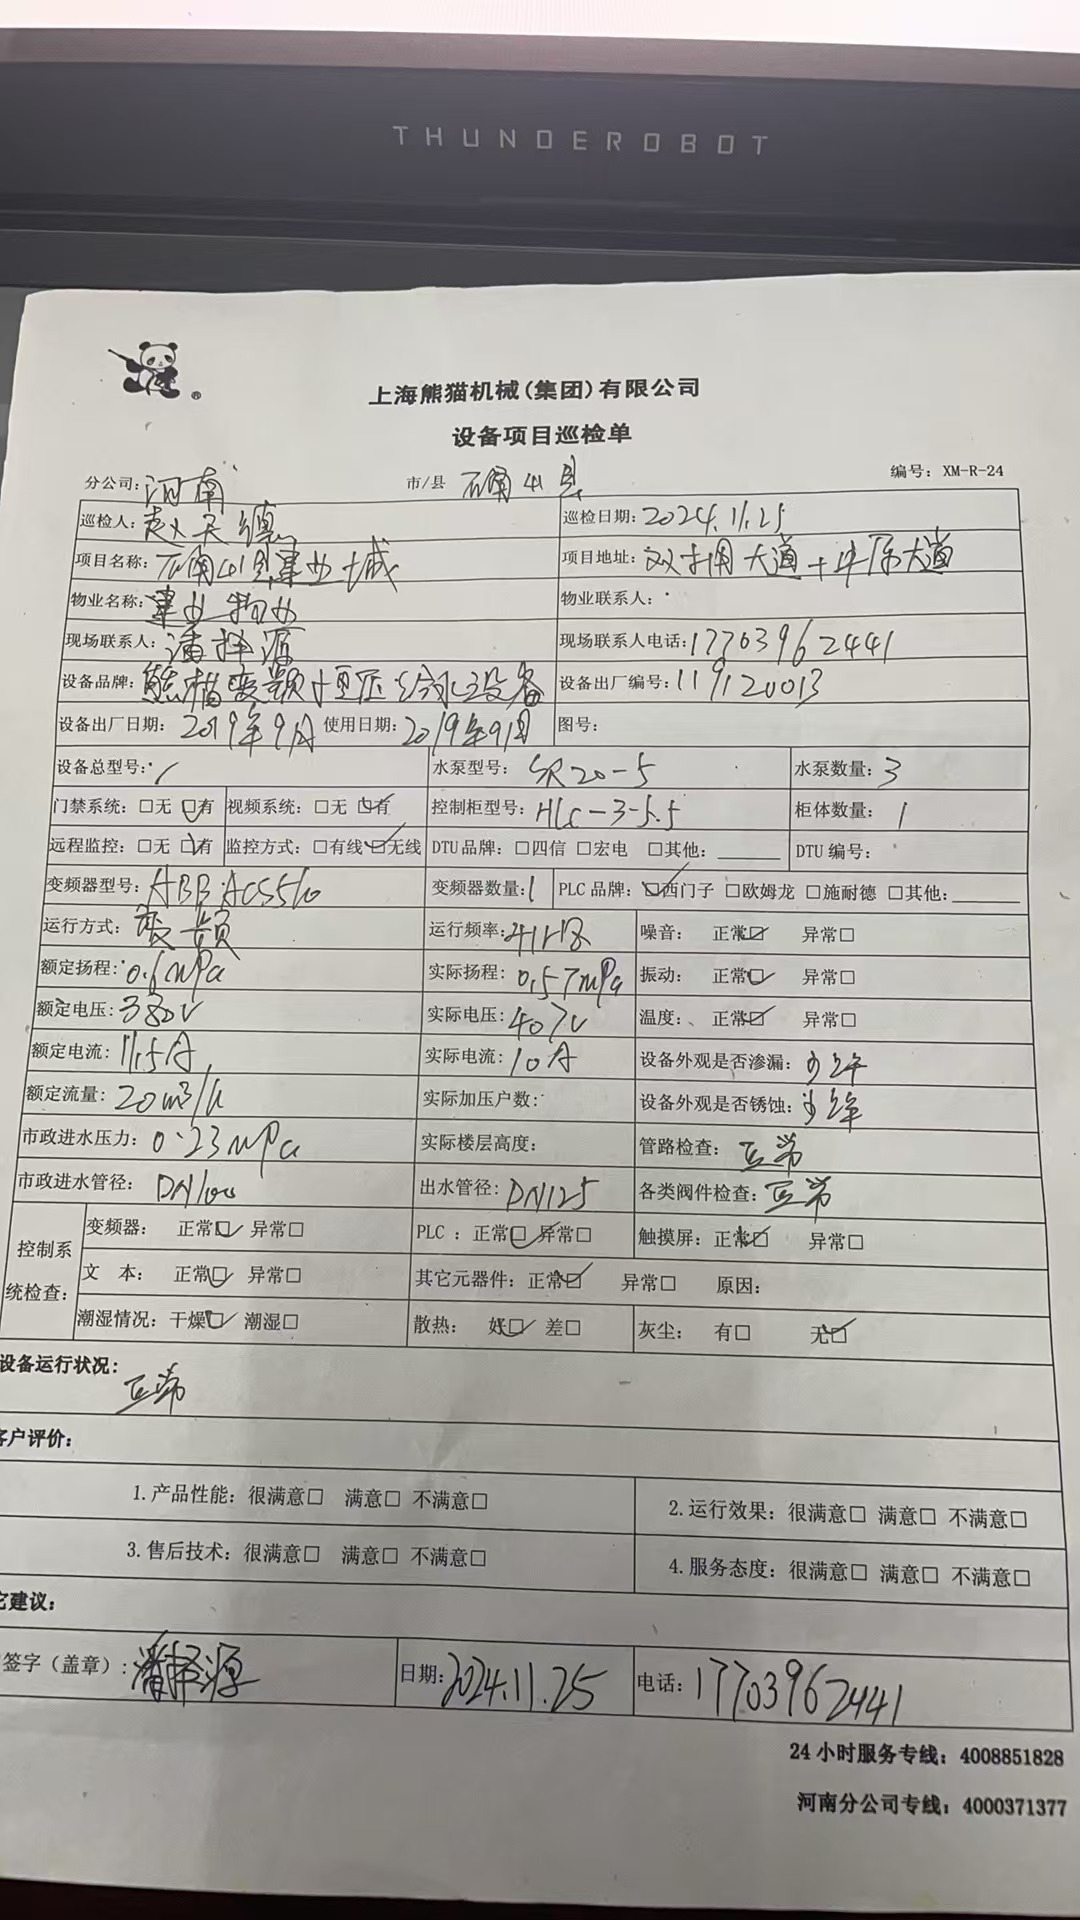 THUNDEROBOT
上海熊猫机械(集团)有限公司
设备项目巡检单
分公司: 河南 市/县 确山县 编号: XM-R-24
巡检人: 赵天德 巡检日期: 2024.11.25
项目名称: 确山县建业城 项目地址: 大道+中原大道
物业名称: 建业物业 物业联系人:
现场联系人: 潘择源 现场联系人电话: 17703962441
设备品牌: 熊猫变频恒压给水设备 设备出厂编号: 119120013
设备出厂日期: 2019年9月 使用日期: 2019年9月 图号:
设备总型号: / 水泵型号: SR20-5 水泵数量: 3
门禁系统: □无 ☑有 视频系统: □无 ☑有 控制柜型号: HLC-3-5.5 柜体数量: 1
远程监控: □无 ☑有 监控方式: □有线 ☑无线 DTU品牌: □四信 □宏电 □其他: ______ DTU编号:
变频器型号: ABB ACS510 变频器数量: 1 PLC品牌: ☑西门子 □欧姆龙 □施耐德 □其他: ______
运行方式: 变频 运行频率: 41HZ 噪音: 正常☑ 异常□
额定扬程: 0.6MPa 实际扬程: 0.57MPa 振动: 正常☑ 异常□
额定电压: 380V 实际电压: 407V 温度: 正常☑ 异常□
额定电流: 11.5A 实际电流: 10A 设备外观是否渗漏:
额定流量: 20m³/h 实际加压户数: 设备外观是否锈蚀:
市政进水压力: 0.23MPa 实际楼层高度: 管路检查: 正常
市政进水管径: DN100 出水管径: DN125 各类阀件检查: 正常
控制系统检查: 变频器: 正常☑ 异常□ PLC: 正常☑ 异常□ 触摸屏: 正常☑ 异常□
文 本: 正常☑ 异常□ 其它元器件: 正常☑ 异常□ 原因:
潮湿情况: 干燥☑ 潮湿□ 散热: 好☑ 差□ 灰尘: 有□ 无☑
设备运行状况:
正常
客户评价:
1.产品性能: 很满意□ 满意□ 不满意□ 2.运行效果: 很满意□ 满意□ 不满意□
3.售后技术: 很满意□ 满意□ 不满意□ 4.服务态度: 很满意□ 满意□ 不满意□
它建议:
签字(盖章): 潘择源 日期: 2024.11.25 电话: 17703962441
24小时服务专线: 4008851828
河南分公司专线: 4000371377